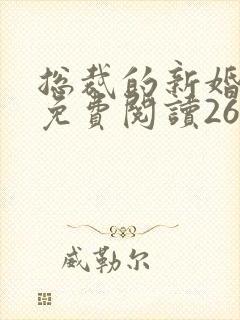 总裁的新婚
免費閱讀26
威勒尔